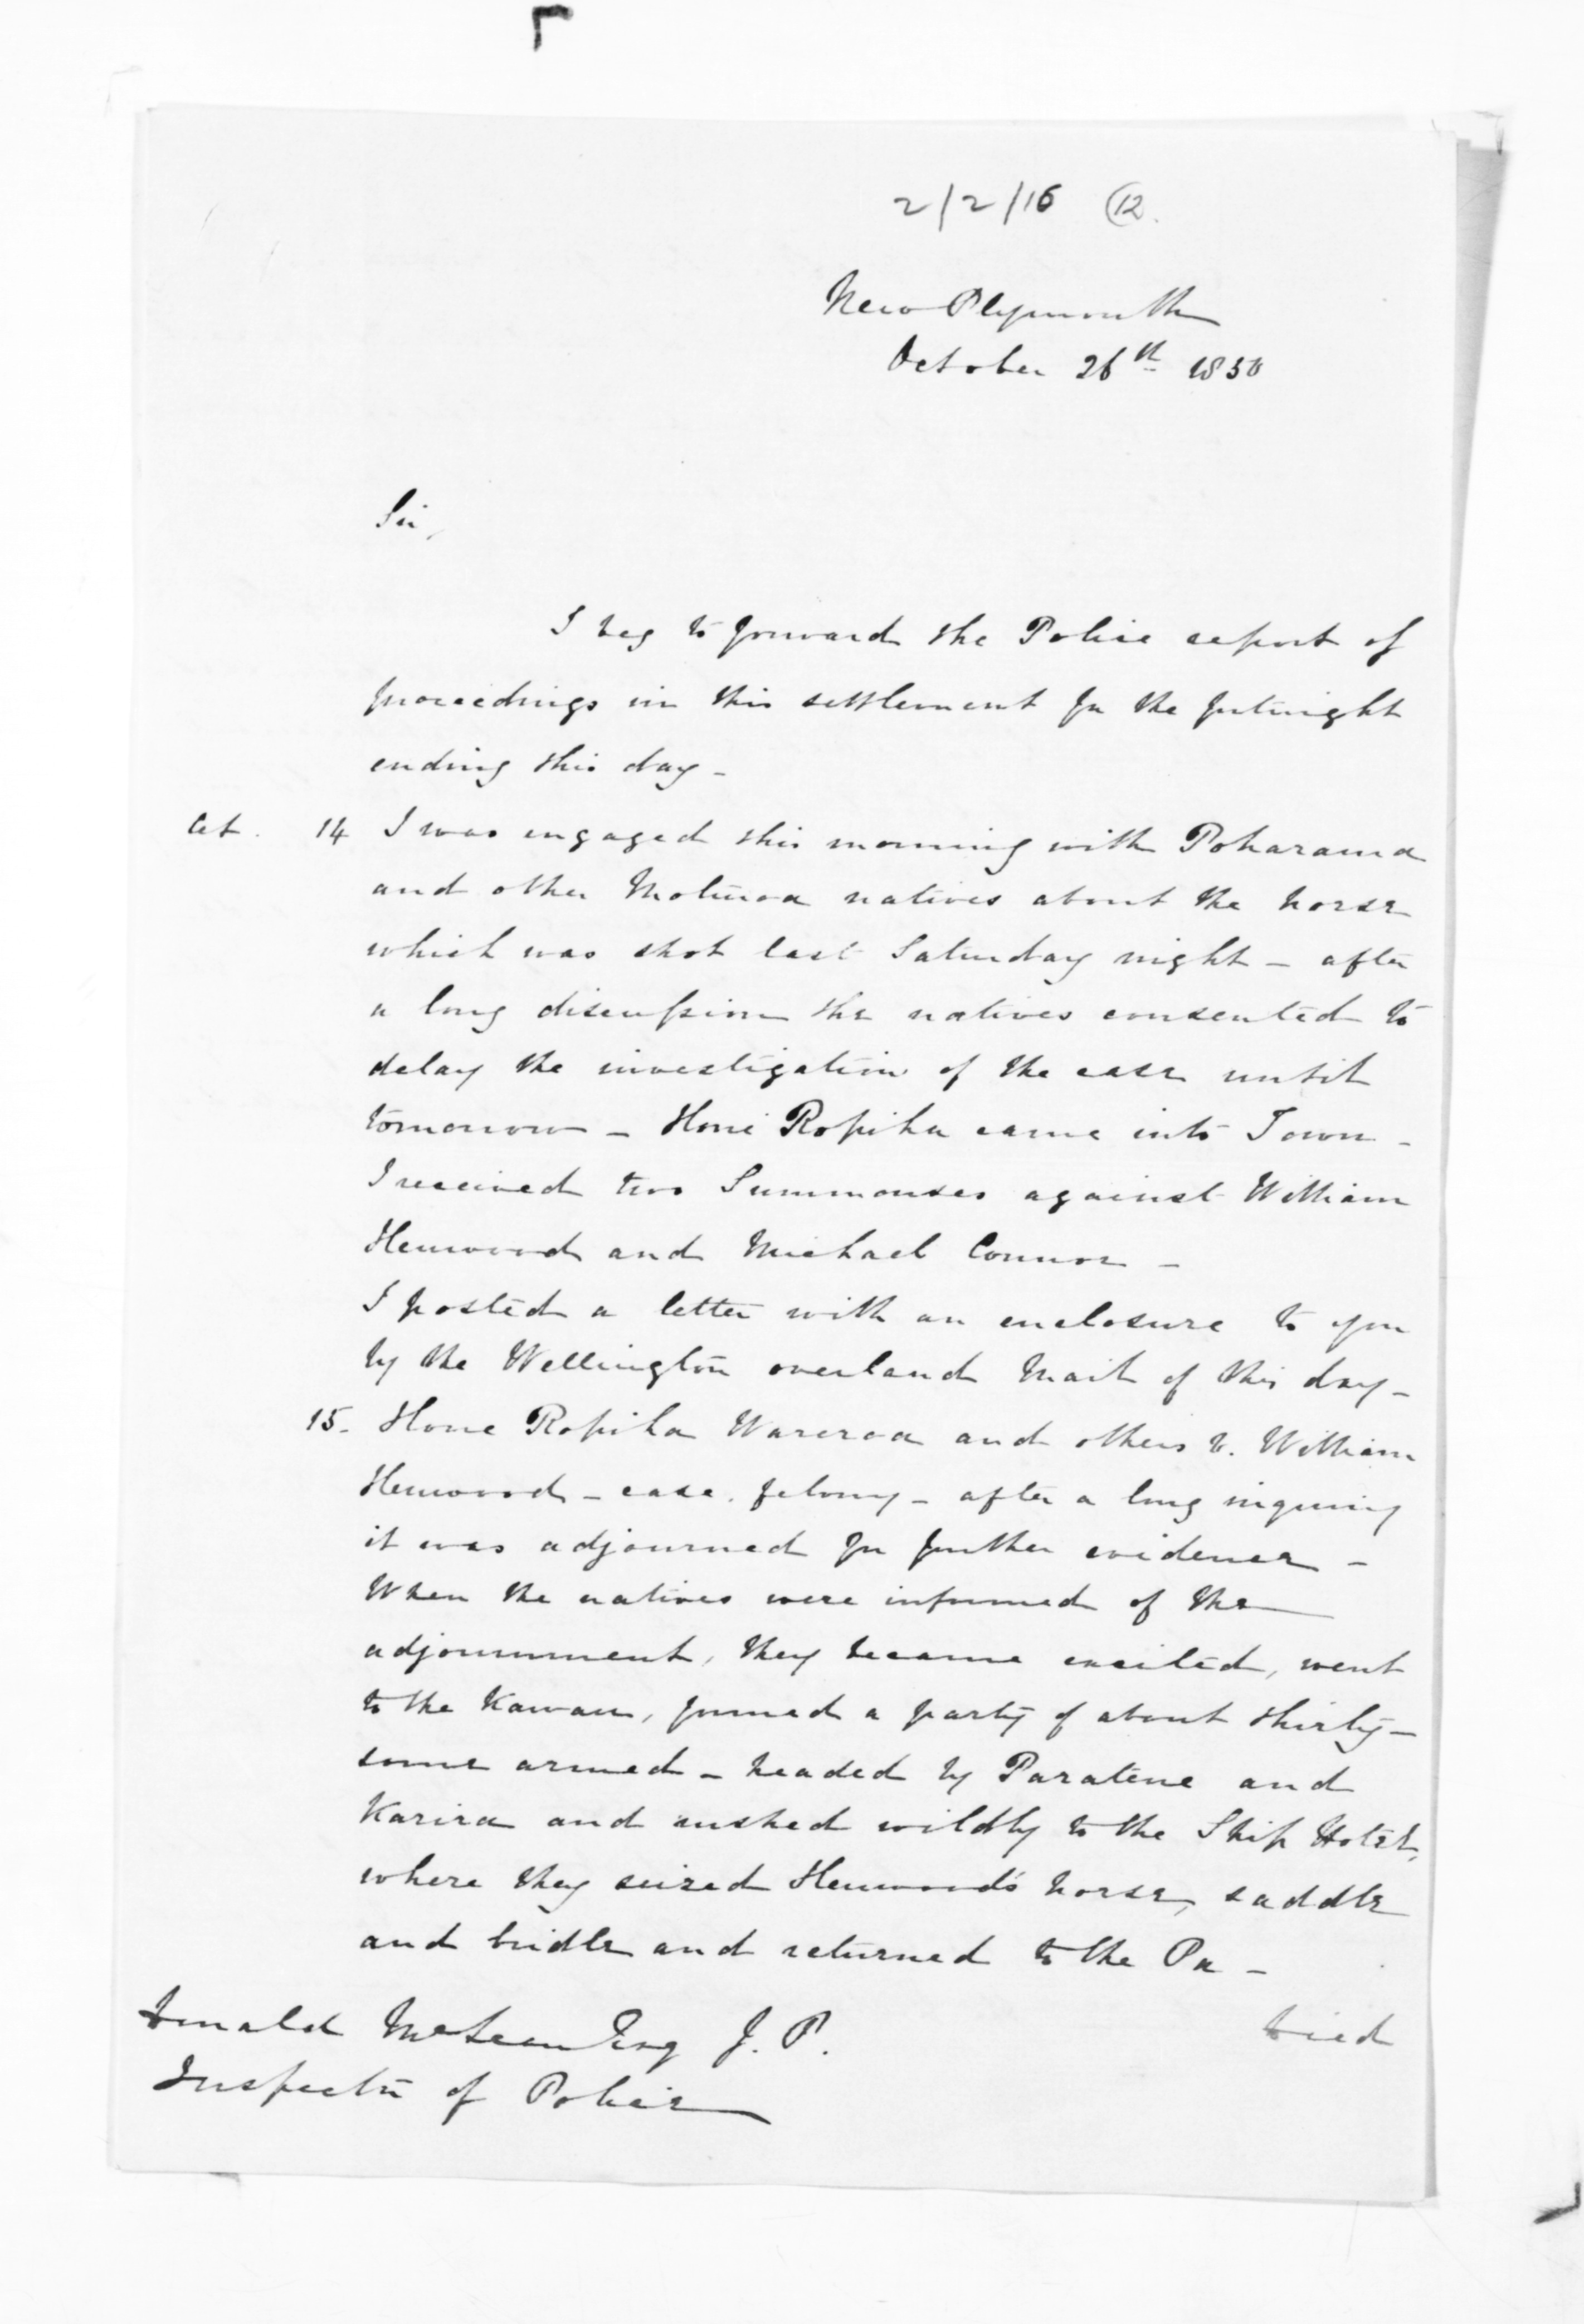 2/2/16 (12.
New Plymouth
October 26th 1850
Sir,
I beg to forward the Police report of
proceedings in this settlement for the fortnight
ending this day -
Oct. 14 I was engaged this morning with Poharama
and other Moturoa natives about the horse
which was shot last Saturday night - after
a long discussion the natives consented to
delay the investigation of the case until
tomorrow - Hone Ropiha came into Town -
I received two Summonses against William
Henwood and Michael Connor -
I posted a letter with an enclosure to you
by the Wellington overland Mail of this day -
15. Hone Ropiha Wareroa and others v. William
Henwood - case, felony - after a long inquiry
it was adjourned for further evidence -
When the natives were informed of the
adjournment, they became excited, went
to the Kawau, formed a party of about thirty -
some armed - headed by Paratene and
Karira and rushed wildly to the Ship Hotel,
where they seized Henwood's horse, saddle
and bridle and returned to the Pa -
tied
Donald McLean Esq J. P.
Inspector of Police